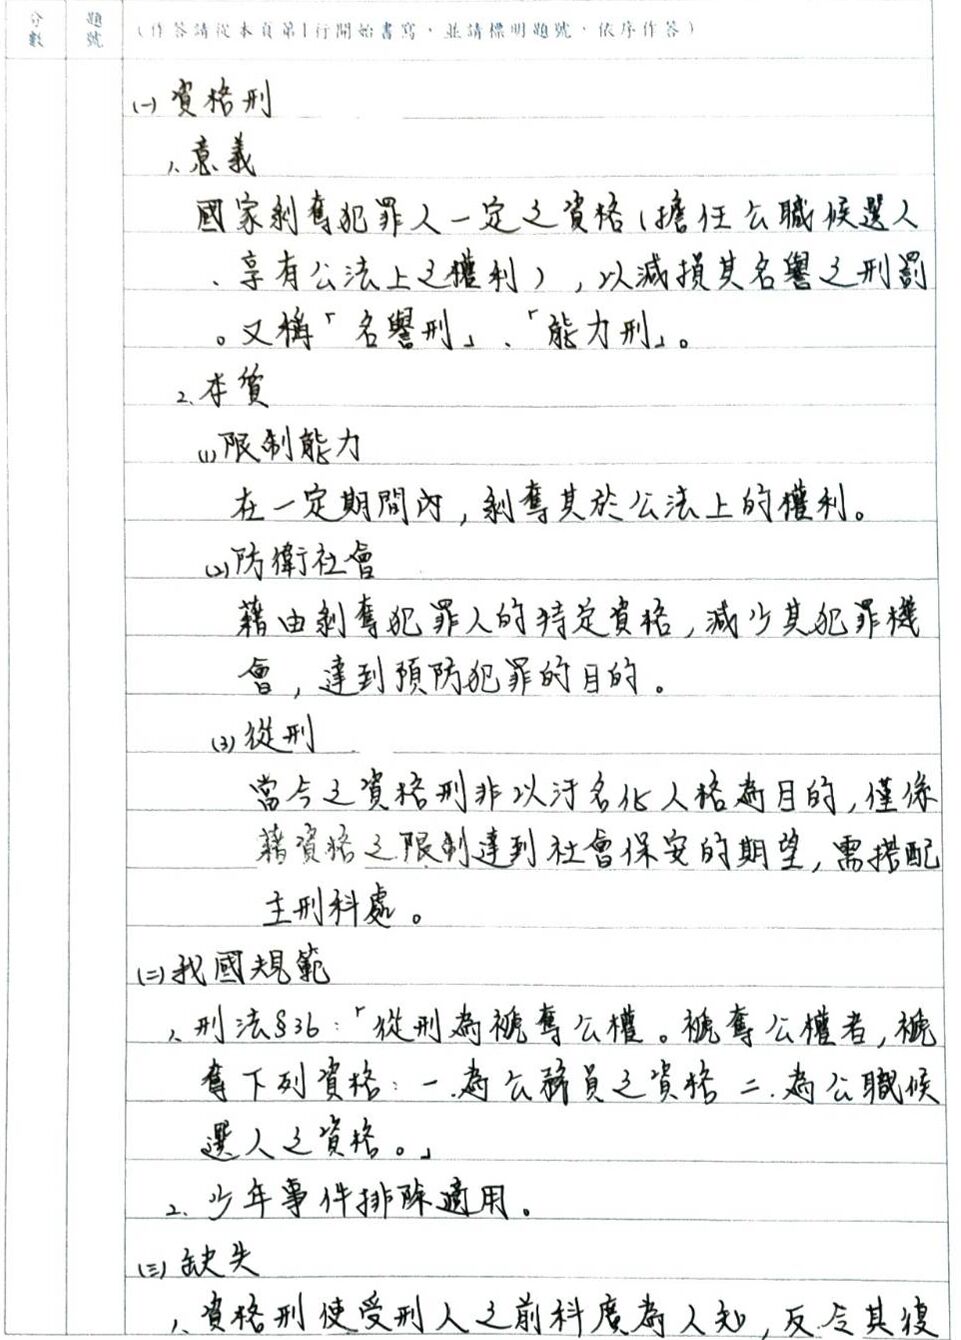 分數 題號 (作答請從本頁第1行開始書寫，並請標明題號，依序作答)
(一)資格刑
1、意義
國家剝奪犯罪人一定之資格(擔任公職候選人
、享有公法上之權利)，以減損其名譽之刑罰
。又稱「名譽刑」、「能力刑」。
2、本質
(1)限制能力
在一定期間內，剝奪其於公法上的權利。
(2)防衛社會
藉由剝奪犯罪人的特定資格，減少其犯罪機
會，達到預防犯罪的目的。
(3)從刑
當今之資格刑非以汙名化人格為目的，僅係
藉資格之限制達到社會保安的期望，需搭配
主刑科處。
(二)我國規範
1、刑法§36：「從刑為褫奪公權。褫奪公權者，褫
奪下列資格：一、為公務員之資格 二、為公職候
選人之資格。」
2、少年事件排除適用。
(三)缺失
1、資格刑使受刑人之前科廣為人知，反令其復